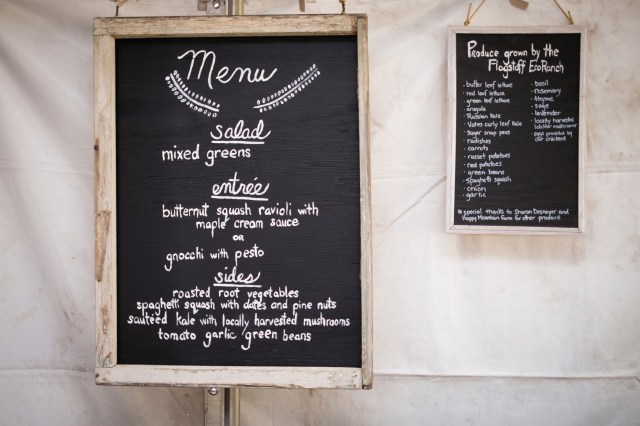 Menu
salad
mixed greens
entrée
butternut squash ravioli with
maple cream sauce
or
gnocchi with pesto
sides
roasted root vegetables
spaghetti squash with dates and pine nuts
sauteed kale with locally harvested mushrooms
tomato garlic green beans
Produce grown by the
Flagstaff EcoRanch
· butter leaf lettuce
· red leaf lettuce
· green leaf lettuce
· arugula
· Russian Kale
· Vates curly leaf Kale
· sugar snap peas
· radishes
· carrots
· russet potatoes
· red potatoes
· green beans
· spaghetti squash
· onion
· garlic
· basil
· rosemary
· thyme
· sage
· lavender
· locally harvested
lobster mushrooms
provided by
our
* special thanks to Sharon and
Happy Mountain Farm for other produce